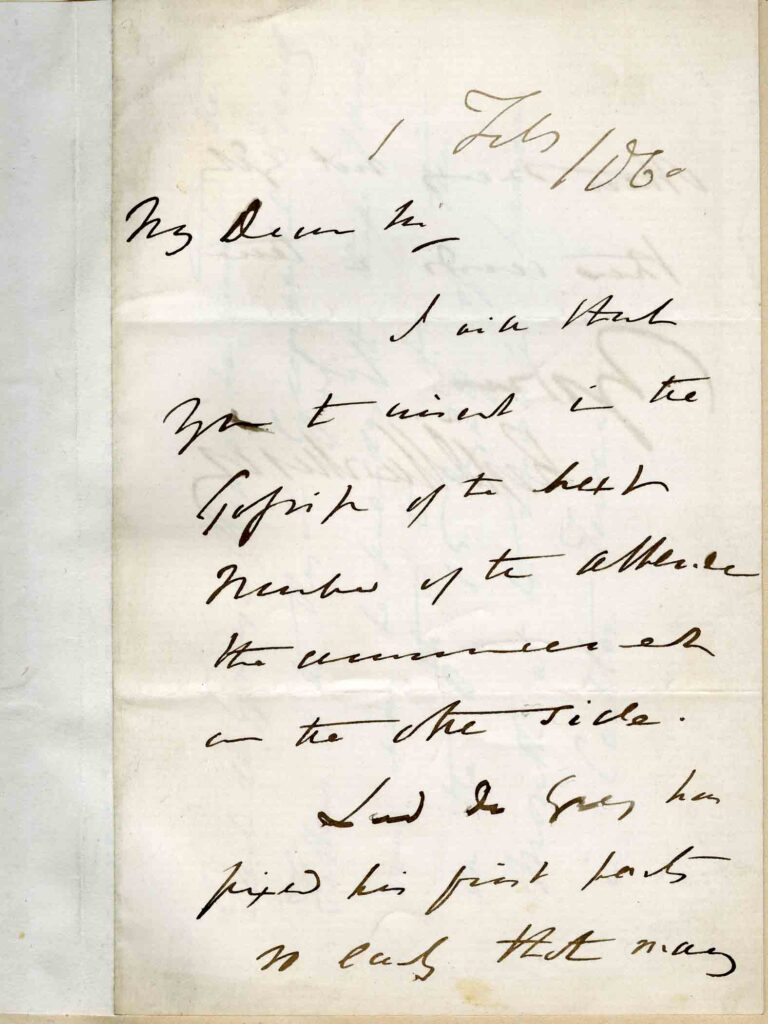 1 Feb /60
My Dear Sir
I wish that
you to insert in the
Gossip of the next
Number of the Athenaeum
the announcement
on the other side.
Lord De Grey has
fixed his first party
so early that many